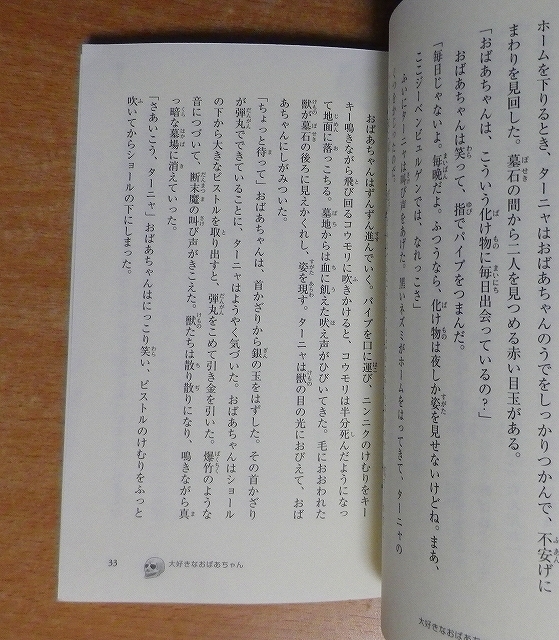 ホームを下りるとき、ターニャはおばあちゃんのうでをしっかりつかんで、不安げに
まわりを見回した。墓石の間から二人を見つめる赤い目玉がある。
「おばあちゃんは、こういう化け物に毎日出会っているの？」
おばあちゃんは笑って、指でパイプをつまんだ。
「毎日じゃないよ。毎晩だよ。ふつうなら、化け物は夜しか姿を見せないけどね。まあ、
ここジーベンビュルゲンでは、なれっこさ」
ふいにターニャは叫び声をあげた。黒いネズミがホームをはってきて、ターニャの
大好きなおばあちゃ
おばあちゃんはずんずん進んでいく。パイプを口に運び、ニンニクのけむりをキー
キー鳴きながら飛び回るコウモリに吹きかけると、コウモリは半分死んだようになっ
て地面に落っこちる。墓地からは血に飢えた吠え声がひびいてきた。毛におおわれた
獣が墓石の後ろに見えかくれし、姿を現す。ターニャは獣の目の光におびえて、おば
あちゃんにしがみついた。
「ちょっと待って」おばあちゃんは、首かざりから銀の玉をはずした。その首かざり
が弾丸でできていることに、ターニャはようやく気づいた。おばあちゃんはショール
の下から大きなピストルを取り出すと、弾丸をこめて引き金を引いた。爆竹のような
音につづいて、断末魔の叫び声がきこえた。獣たちは散り散りになり、鳴きながら真
っ暗な墓場に消えていった。
「さあいこう、ターニャ」おばあちゃんはにっこり笑い、ピストルのけむりをふっと
吹いてからショールの下にしまった。
33 大好きなおばあちゃん